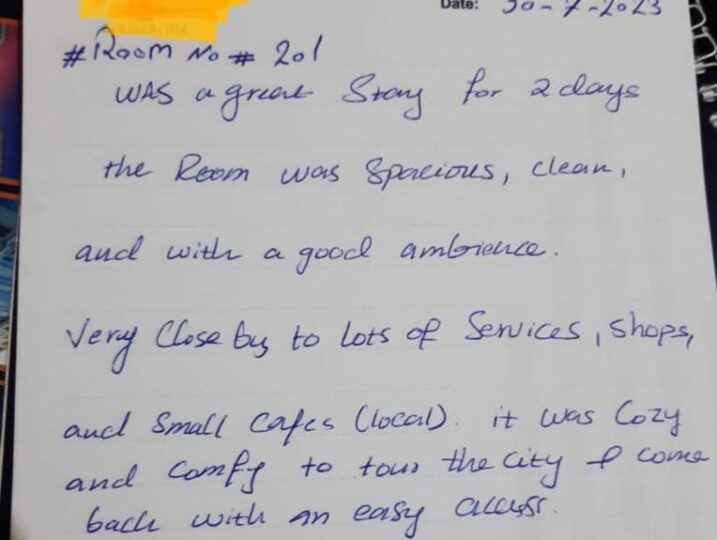 Date: 30-7-2023
# Room No # 201
WAS a great Stay for 2 days
the Room was Spacious, clean,
and with a good ambience.
Very Close by to Lots of Services, Shops,
and Small Cafes (local). it was Cozy
and Comfy to tour the city & come
back with an easy access.